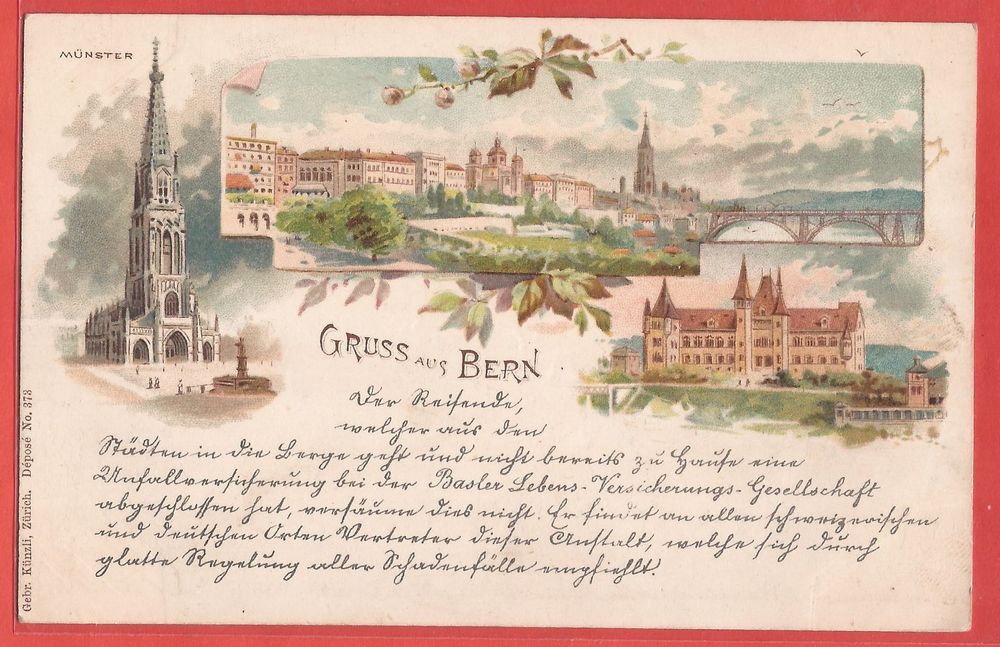 MÜNSTER
GRUSS AUS BERN
Der Reisende,
welcher aus den
Städten in die Berge geht und nicht bereits zu Hause eine
Unfallversicherung bei der Basler Lebens-Versicherungs-Gesellschaft
abgeschlossen hat, versäume dies nicht. Er findet an allen schweizerischen
und deutschen Orten Vertreter dieser Anstalt, welche sich durch
glatte Regelung aller Schadenfälle empfiehlt.
Gebr. Künzli, Zürich. Déposé No. 373